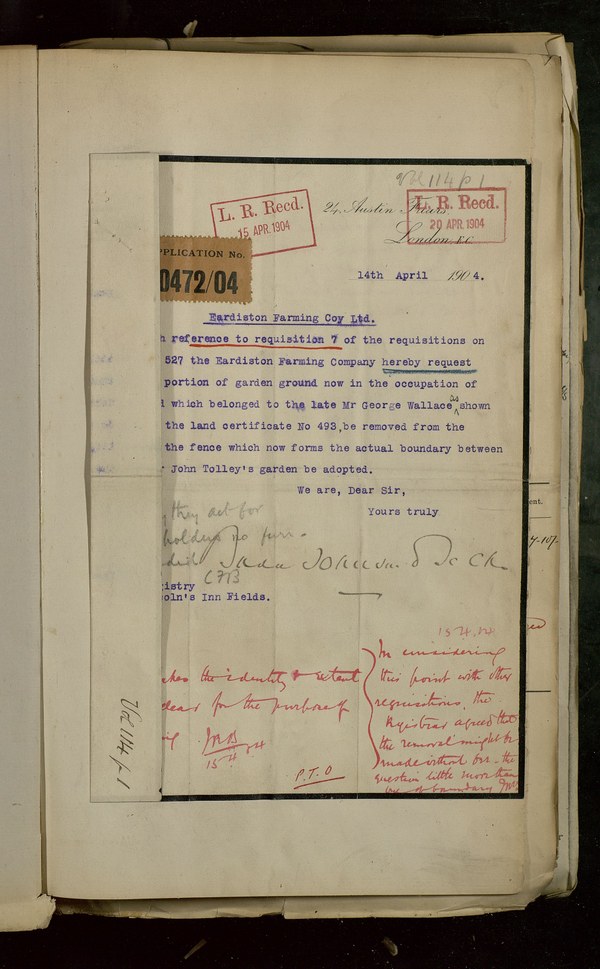 Vol 114 p 1
L. R. Recd.
15 APR. 1904
24, Austin Friars
London E.C.
L. R. Recd.
20 APR. 1904
PLICATION No.
0472/04
14th April 1904.
Eardiston Farming Coy Ltd.
h reference to requisition 7 of the requisitions on
527 the Eardiston Farming Company hereby request
portion of garden ground now in the occupation of
which belonged to the late Mr George Wallace as shown
the land certificate No 493, be removed from the
the fence which now forms the actual boundary between
John Tolley's garden be adopted.
We are, Dear Sir,
Yours truly
they act for
holders no furr
istry
oln's Inn Fields.
15.4.04
In considering
this point with other
requisitions, the
Registrar agreed that
the removal might be
made without the
question little more than
of boundary
kes the identity & extent
lear for the purpose of
15 4 04
P.T.O
Vol 114 p 1
ent.